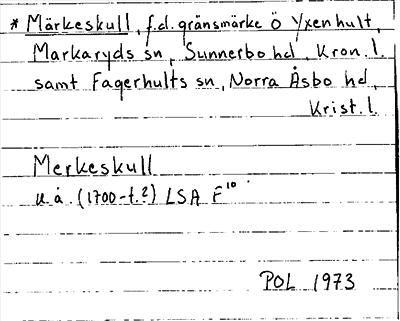 * Märkeskull, f.d. gränsmärke Ö Yxenhult,
Markaryds sn, Sunnerbo hd, Kron. l.
samt Fagerhults sn, Norra Åsbo hd,
Krist. l.
Merkeskull
u.å. (1700-t.?) LSA F¹⁰
POL 1973